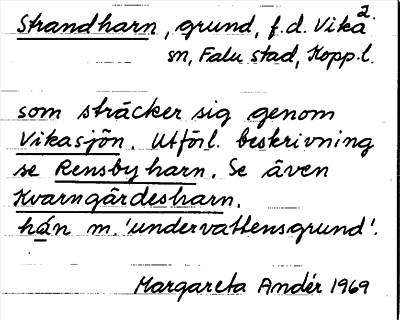 Strandharn, grund, f.d. Vika 2.
sn, Falu stad, Kopp.l.
som sträcker sig genom
Vikasjön. Utförl. beskrivning
se Rensbyharn. Se även
Kvarngärdesharn.
hán m. 'undervattensgrund'.
Margareta Andér 1969